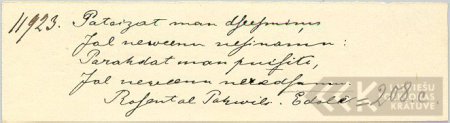 11923. Pataizat man dseesminu
Jal neweenu nesinamu:
Parahdat man puisiti,
Jal neweenu neredsamu.
Rosental Pakwils. Edole = 208 a.